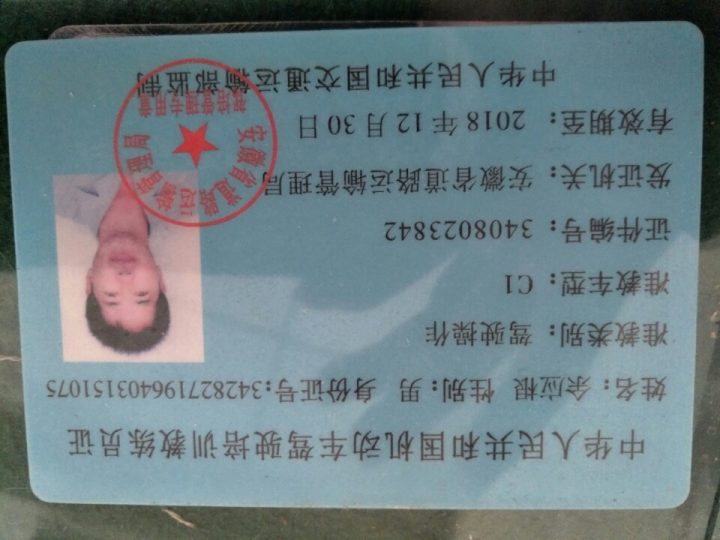 中华人民共和国机动车驾驶培训教练员证
姓名：余应根 性别：男 身份证号:342827196403151075
准教类别：驾驶操作
准教车型：C1
证件编号：3408023842
发证机关：安徽省道路运输管理局
有效期至：2018年12月30日
中华人民共和国交通运输部监制
安徽省道路运输管理局
驾培管理专用章